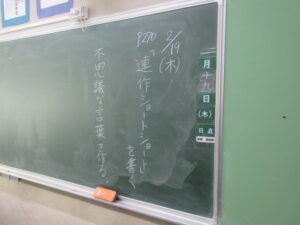 二月十九日(木)
日直
2/19(木)
P270「連作ショートショート」を書く
不思議な言葉を作る。